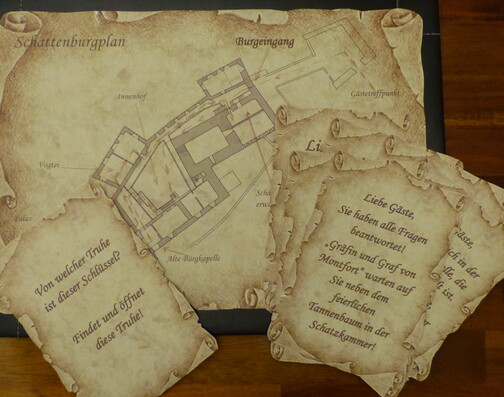 Schattenburgplan
Burgeingang
Innenhof
Gästetreffpunkt
Vogtei
Palas
Alte Burgkapelle
Von welcher Truhe
ist dieser Schlüssel?
Findet und öffnet
diese Truhe!
Liebe Gäste,
Sie haben alle Fragen
beantwortet!
"Gräfin und Graf von
Montfort" warten auf
Sie neben dem
feierlichen
Tannenbaum in der
Schatzkammer!